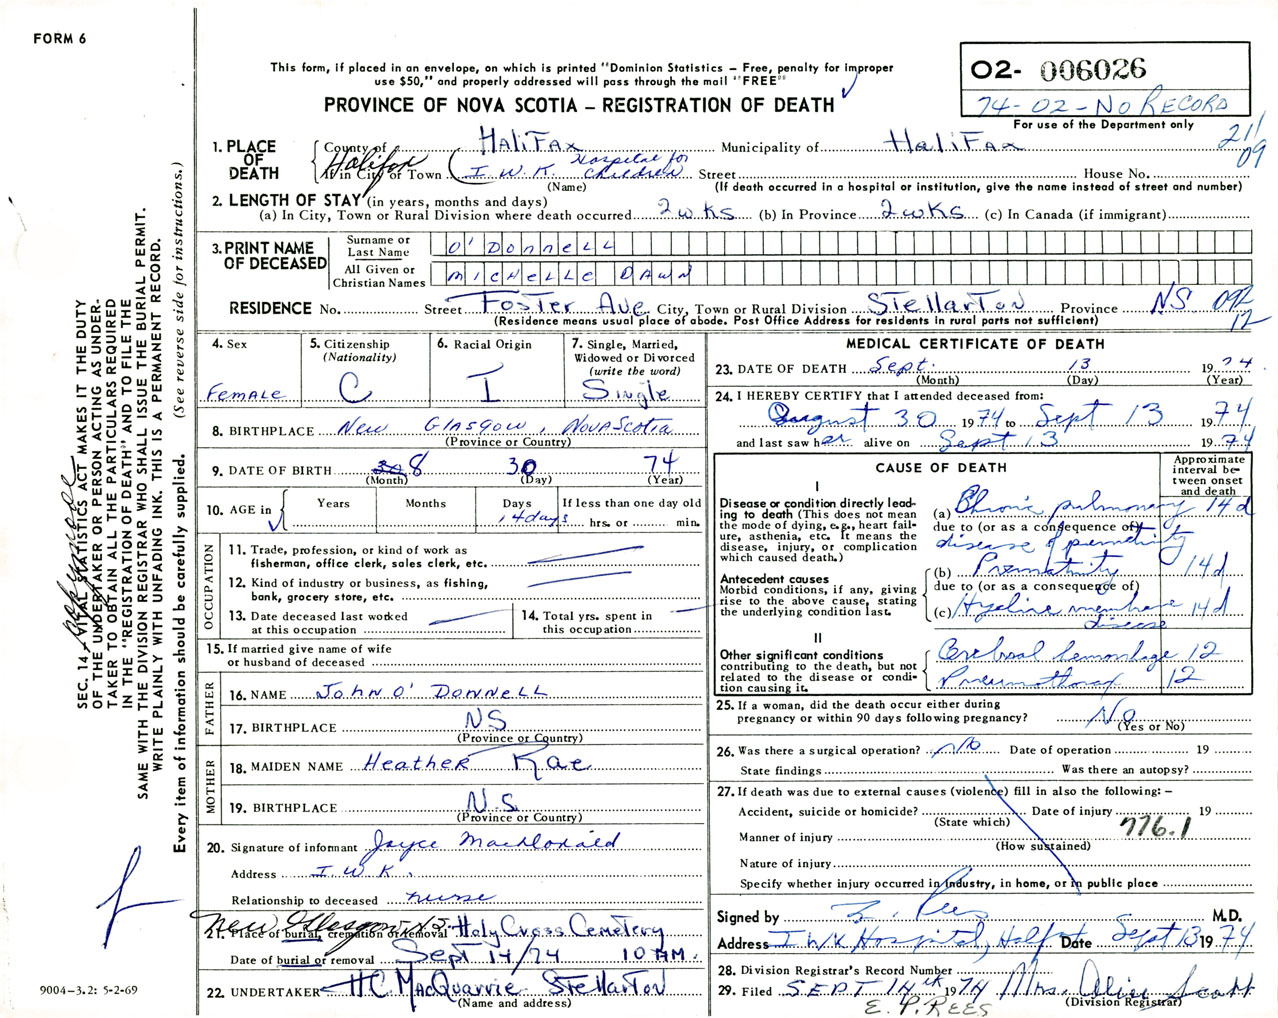 FORM 6
This form, if placed in an envelope, on which is printed "Dominion Statistics – Free, penalty for improper
use $50," and properly addressed will pass through the mail "FREE"
PROVINCE OF NOVA SCOTIA – REGISTRATION OF DEATH
O2- 006026
74-02-No RECORD
For use of the Department only
21/
09
1. PLACE OF DEATH
County of HALiFAx Municipality of HALiFAx
Halifax
If in City or Town I. W. K. Hospital for Children Street House No.
(Name) (If death occurred in a hospital or institution, give the name instead of street and number)
2. LENGTH OF STAY (in years, months and days)
(a) In City, Town or Rural Division where death occurred 2 wKS (b) In Province 2 wKS (c) In Canada (if immigrant)
3. PRINT NAME OF DECEASED
Surname or Last Name O'DonnELL
All Given or Christian Names MICHELLE DAWN
RESIDENCE No. Street Foster Ave City, Town or Rural Division Stellarton Province NS 092
12
(Residence means usual place of abode. Post Office Address for residents in rural parts not sufficient)
4. Sex
FemALE
5. Citizenship
(Nationality)
C
6. Racial Origin
I
7. Single, Married,
Widowed or Divorced
(write the word)
Single
8. BIRTHPLACE New Glasgow, Nova Scotia
(Province or Country)
9. DATE OF BIRTH 8 30 74
(Month) (Day) (Year)
10. AGE in Years Months Days If less than one day old
14 days hrs. or min.
OCCUPATION
11. Trade, profession, or kind of work as
fisherman, office clerk, sales clerk, etc.
12. Kind of industry or business, as fishing,
bank, grocery store, etc.
13. Date deceased last worked
at this occupation
14. Total yrs. spent in
this occupation
15. If married give name of wife
or husband of deceased
FATHER
16. NAME John O'Donnell
17. BIRTHPLACE NS
(Province or Country)
MOTHER
18. MAIDEN NAME Heather Rae
19. BIRTHPLACE N.S
(Province or Country)
20. Signature of informant Joyce MacDonald
Address I W K.
Relationship to deceased nurse
New Glasgow N.S.
21. Place of burial, cremation or removal Holy Cross Cemetery
Date of burial or removal Sept 14/74 10 AM.
22. UNDERTAKER HC MacQuarrie Stellarton
(Name and address)
MEDICAL CERTIFICATE OF DEATH
23. DATE OF DEATH Sept. 13 1974
(Month) (Day) (Year)
24. I HEREBY CERTIFY that I attended deceased from:
August 30 1974 to Sept 13 1974
and last saw her alive on Sept 13 1974
CAUSE OF DEATH
Approximate interval between onset and death
I
Disease or condition directly leading to death (This does not mean the mode of dying, e.g., heart failure, asthenia, etc. It means the disease, injury, or complication which caused death.)
(a) Chronic pulmonary 14 d
due to (or as a consequence of)
disease of prematurity
Antecedent causes
Morbid conditions, if any, giving rise to the above cause, stating the underlying condition last.
(b) Prematurity 14d
due to (or as a consequence of)
(c) Hyaline membrane disease 14 d
II
Other significant conditions
contributing to the death, but not related to the disease or condition causing it.
Cerebral hemorrhage 12
Pneumothorax 12
25. If a woman, did the death occur either during
pregnancy or within 90 days following pregnancy? No
(Yes or No)
26. Was there a surgical operation? No Date of operation 19
State findings Was there an autopsy?
27. If death was due to external causes (violence) fill in also the following: –
Accident, suicide or homicide? Date of injury 19
(State which)
776.1
Manner of injury
(How sustained)
Nature of injury
Specify whether injury occurred in industry, in home, or in public place
Signed by E. Rees M.D.
Address I W K Hospital, Halifax Date Sept 13 1974
28. Division Registrar's Record Number
29. Filed SEPT 14th 1974 Mrs. Alice Scott
(Division Registrar)
E. P. REES
SEC. 14 – VITAL STATISTICS ACT MAKES IT THE DUTY
OF THE UNDERTAKER OR PERSON ACTING AS UNDER-
TAKER TO OBTAIN ALL THE PARTICULARS REQUIRED
IN THE "REGISTRATION OF DEATH" AND TO FILE THE
SAME WITH THE DIVISION REGISTRAR WHO SHALL ISSUE THE BURIAL PERMIT.
WRITE PLAINLY WITH UNFADING INK. THIS IS A PERMANENT RECORD.
Every item of information should be carefully supplied. (See reverse side for instructions.)
9004-3.2: 5-2-69